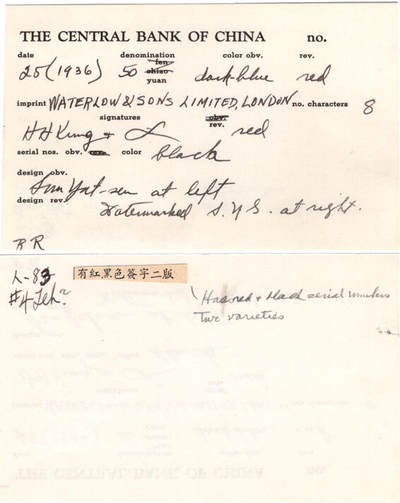 THE CENTRAL BANK OF CHINA no.
date denomination color obv. rev.
fen
chiao
25 (1936) 50 yuan dark-blue red
imprint WATERLOW & SONS LIMITED, LONDON no. characters 8
signatures obv.
rev.
HH Kung + red
serial nos. obv. rev. color black
design obv.
Sun Yat-sen at left
design rev. Watermarked S.Y.S. at right.
RR
L-83 有紅黑色簽字二版
#4 Leh?
Has red & black serial numbers
Two varieties
THE CENTRAL BANK OF CHINA